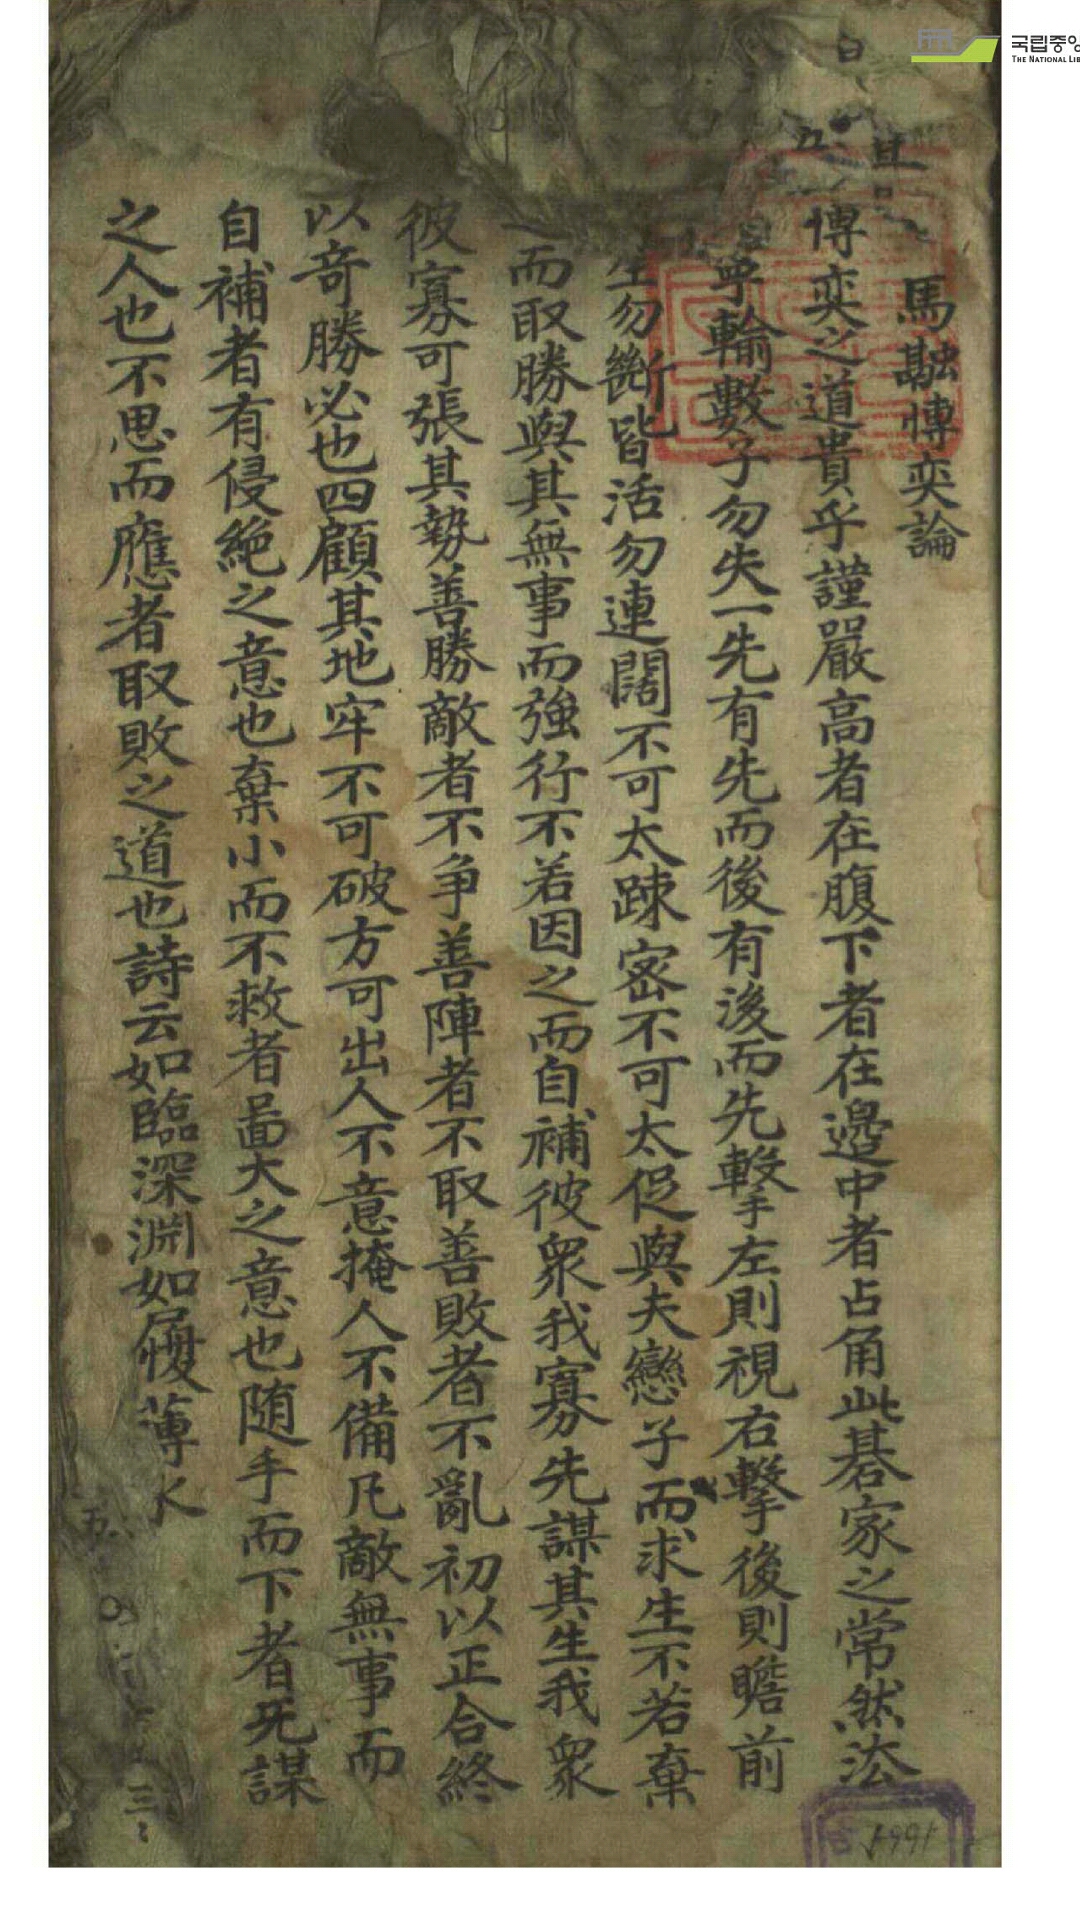 馬融愽奕論
愽奕之道貴乎謹嚴高者在腹下者在邉中者占角此碁家之常然法
寧輸數子勿失一先有先而後有後而先擊左則視右擊後則瞻前
生勿斷皆活勿連闊不可太踈宻不可太促與夫戀子而求生不若棄
而取勝與其無事而強行不若因之而自補彼衆我寡先謀其生我衆
彼寡可張其勢善勝敵者不争善陣者不取善敗者不亂初以正合終
以竒勝必也四顧其地牢不可破方可出人不意掩人不備凡敵無事而
自補者有侵絶之意也棄小而不救者啚大之意也随手而下者死謀
之人也不思而應者取敗之道也詩云如臨深淵如履薄氷
국립중앙
THE NATIONAL LIB
1991